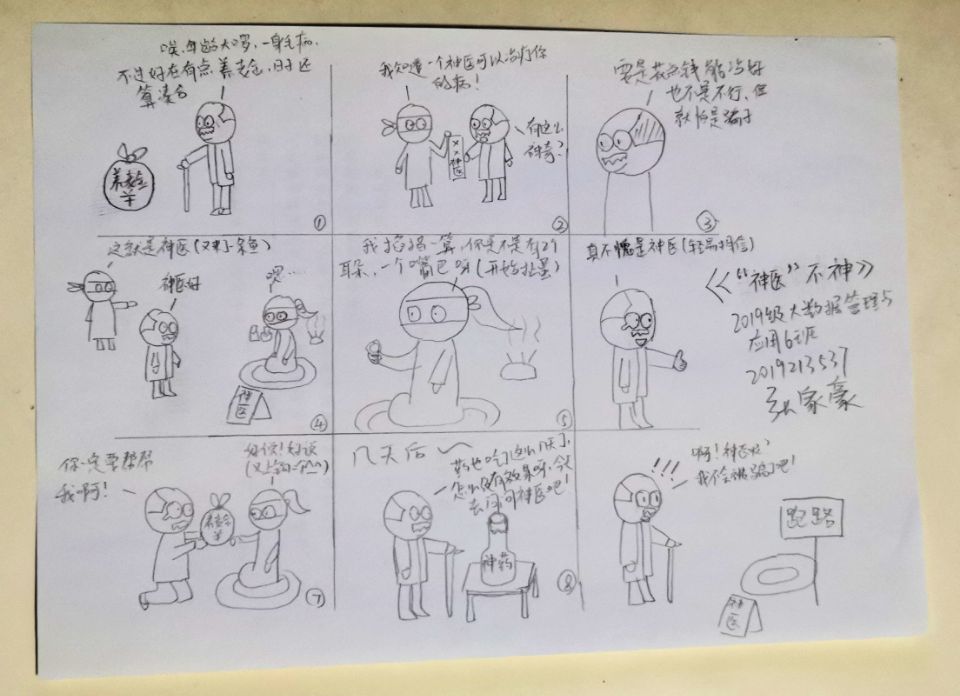 唉,年龄大啰,一身毛病.
不过好在有点养老金,日子还
算凑合
养老金
羊
①
我知道一个神医可以治疗你
的病!
××神医
有这么
神奇?
②
要是花点钱能治好
也不是不行,但
就怕是骗子
③
这就是神医(又来了一条鱼)
神医好
嗯…
神医
④
我掐指一算,你是不是有2个
耳朵,一个嘴巴呀(开始扯蛋)
⑤
真不愧是神医(轻易相信)
《“神医”不神》
2019级大数据管理与
应用6班
2019213537
家豪
你一定要帮帮
我啊!
好说!好说
(又上钩一个^^)
养老金
羊
⑦
几天后～
药也吃了这么几天了,
怎么没有效果呀,今天
去问问神医吧!
神药
⑧
!!!
啊!神医呢?
我不会被骗了吧!
跑路
神医